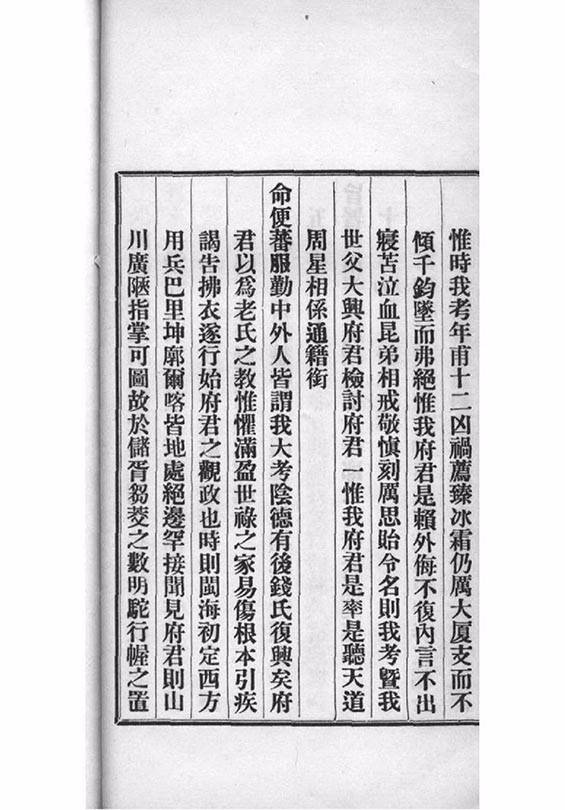 惟時我考年甫十二凶禍薦臻冰霜仍厲大厦支而不
傾千鈞墜而弗絕惟我府君是賴外侮不復內言不出
寢苫泣血昆弟相戒敬慎刻厲思貽令名則我考曁我
世父大興府君檢討府君一惟我府君是率是聽天道
周星相係通籍銜
命使蕃服勤中外人皆謂我大考陰德有後錢氏復興矣府
君以爲老氏之教惟懼滿盈世祿之家易傷根本引疾
謁告拂衣遂行始府君之觀政也時則閩海初定西方
用兵巴里坤廓爾喀皆地處絕邊罕接聞見府君則山
川廣陿指掌可圖故於儲胥芻茭之數明駝行幄之置